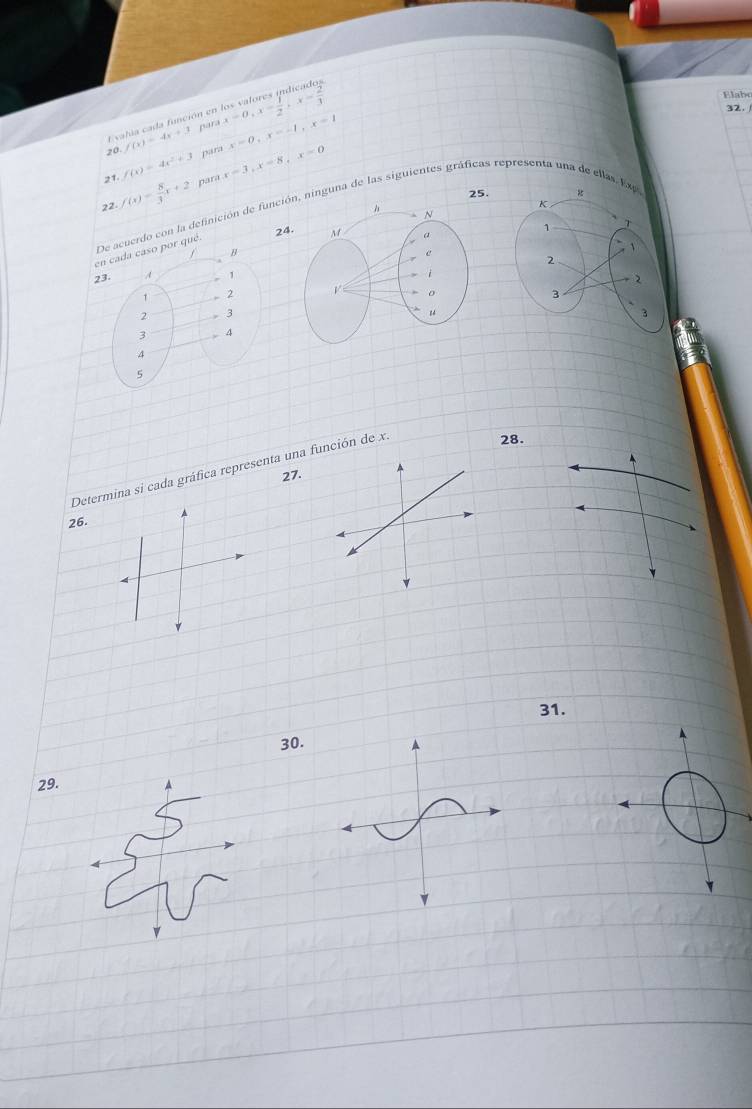 Evalúa cada función en los valores indicados.
20. f(x) = 4x + 3 para x = 0, x = 1/2, x = 2/3
21. f(x) = 4x² + 3 para x = 0, x = -1, x = 1
22. f(x) = 8/3 x + 2 para x = 3, x = 8, x = 0
De acuerdo con la definición de función, ninguna de las siguientes gráficas representa una de ellas.
en cada caso por qué.
23.
f
A
B
1
2
3
4
5
1
2
3
4
24.
h
M
N
V
a
e
i
o
u
25.
g
K
T
1
2
3
1
2
3
Determina si cada gráfica representa una función de x.
26.
27.
28.
29.
30.
31.
32.